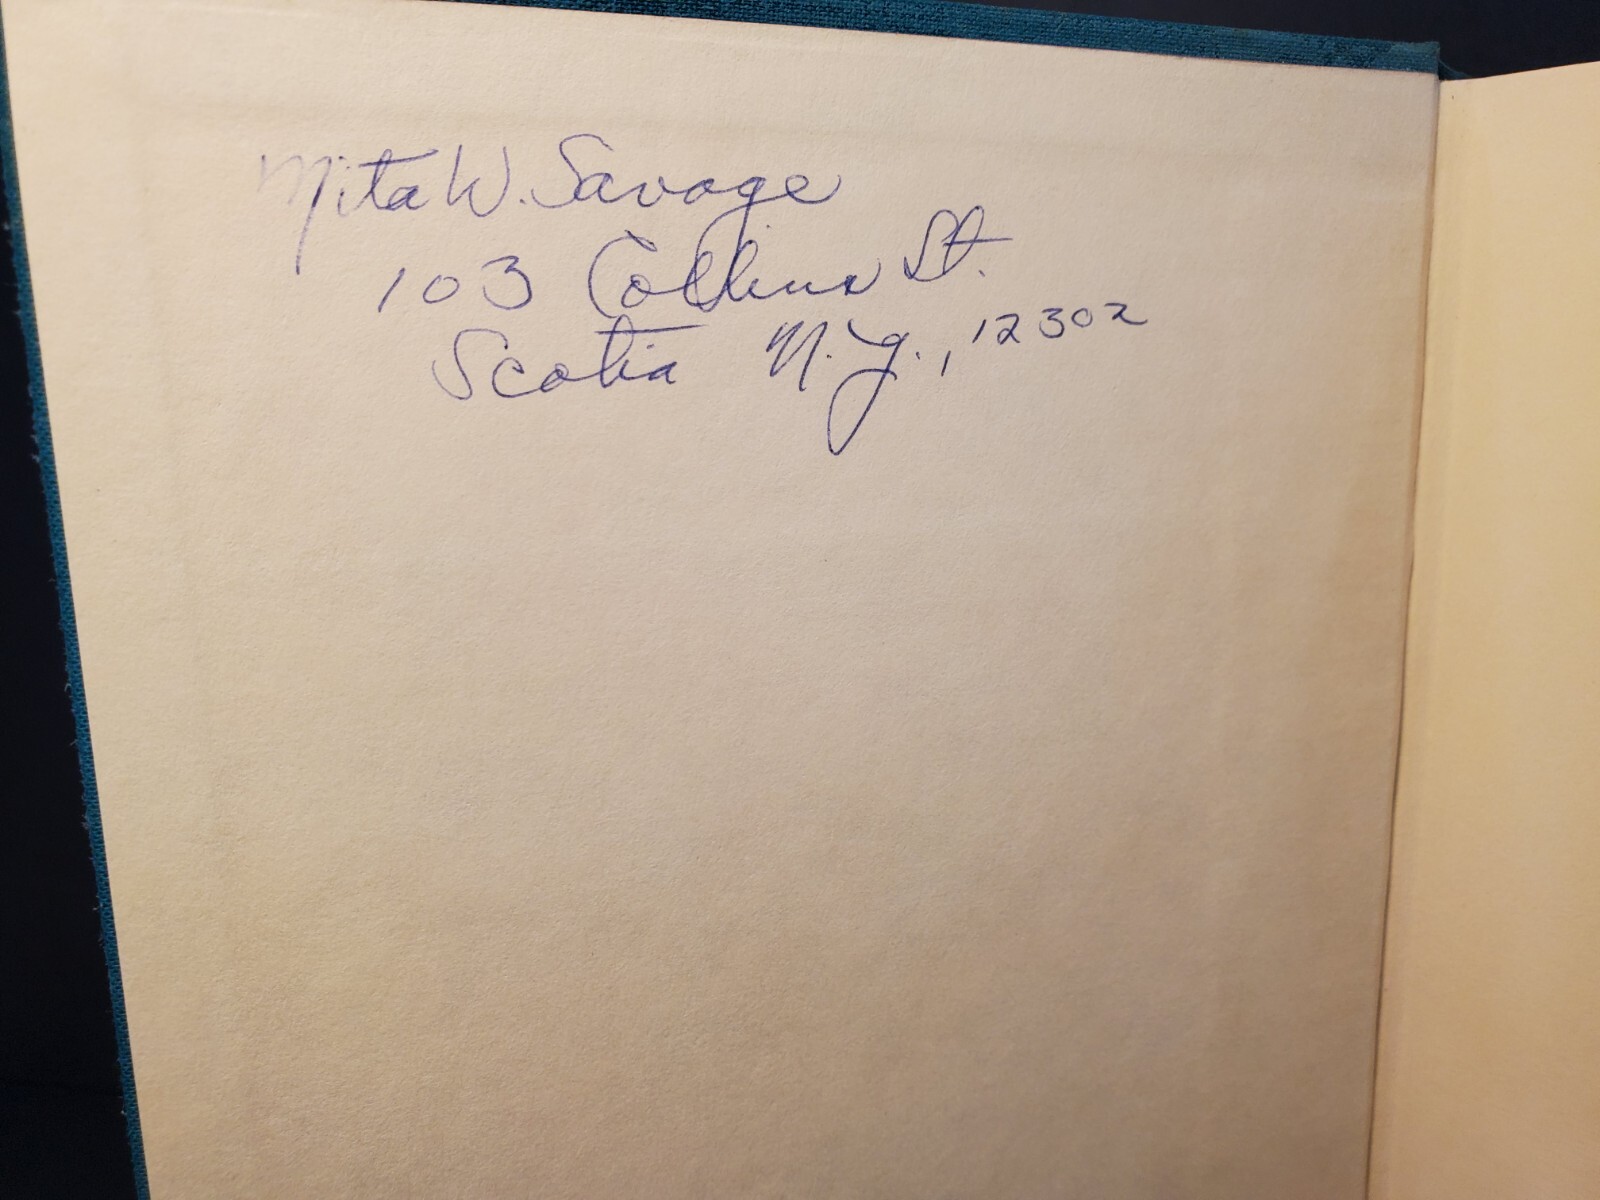 Mita W. Savage
103 Collins St.
Scotia N.Y., 12302